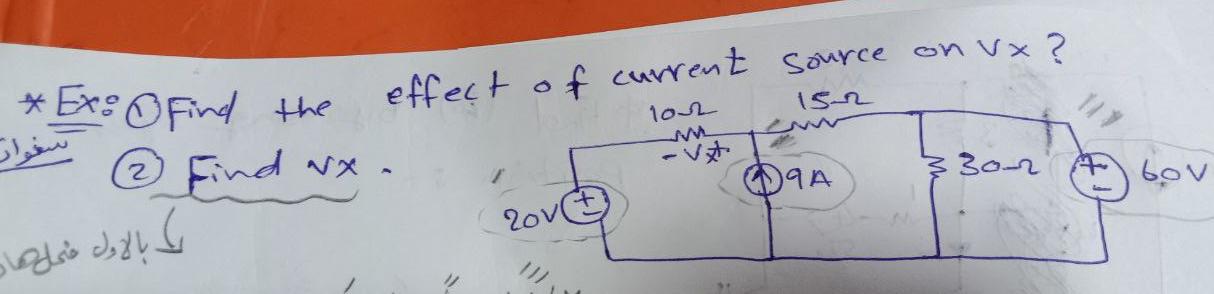 * Ex: ① Find the effect of current source on vx?
② Find vx.
10Ω
15Ω
- Vx +
20V
9A
30Ω
60V